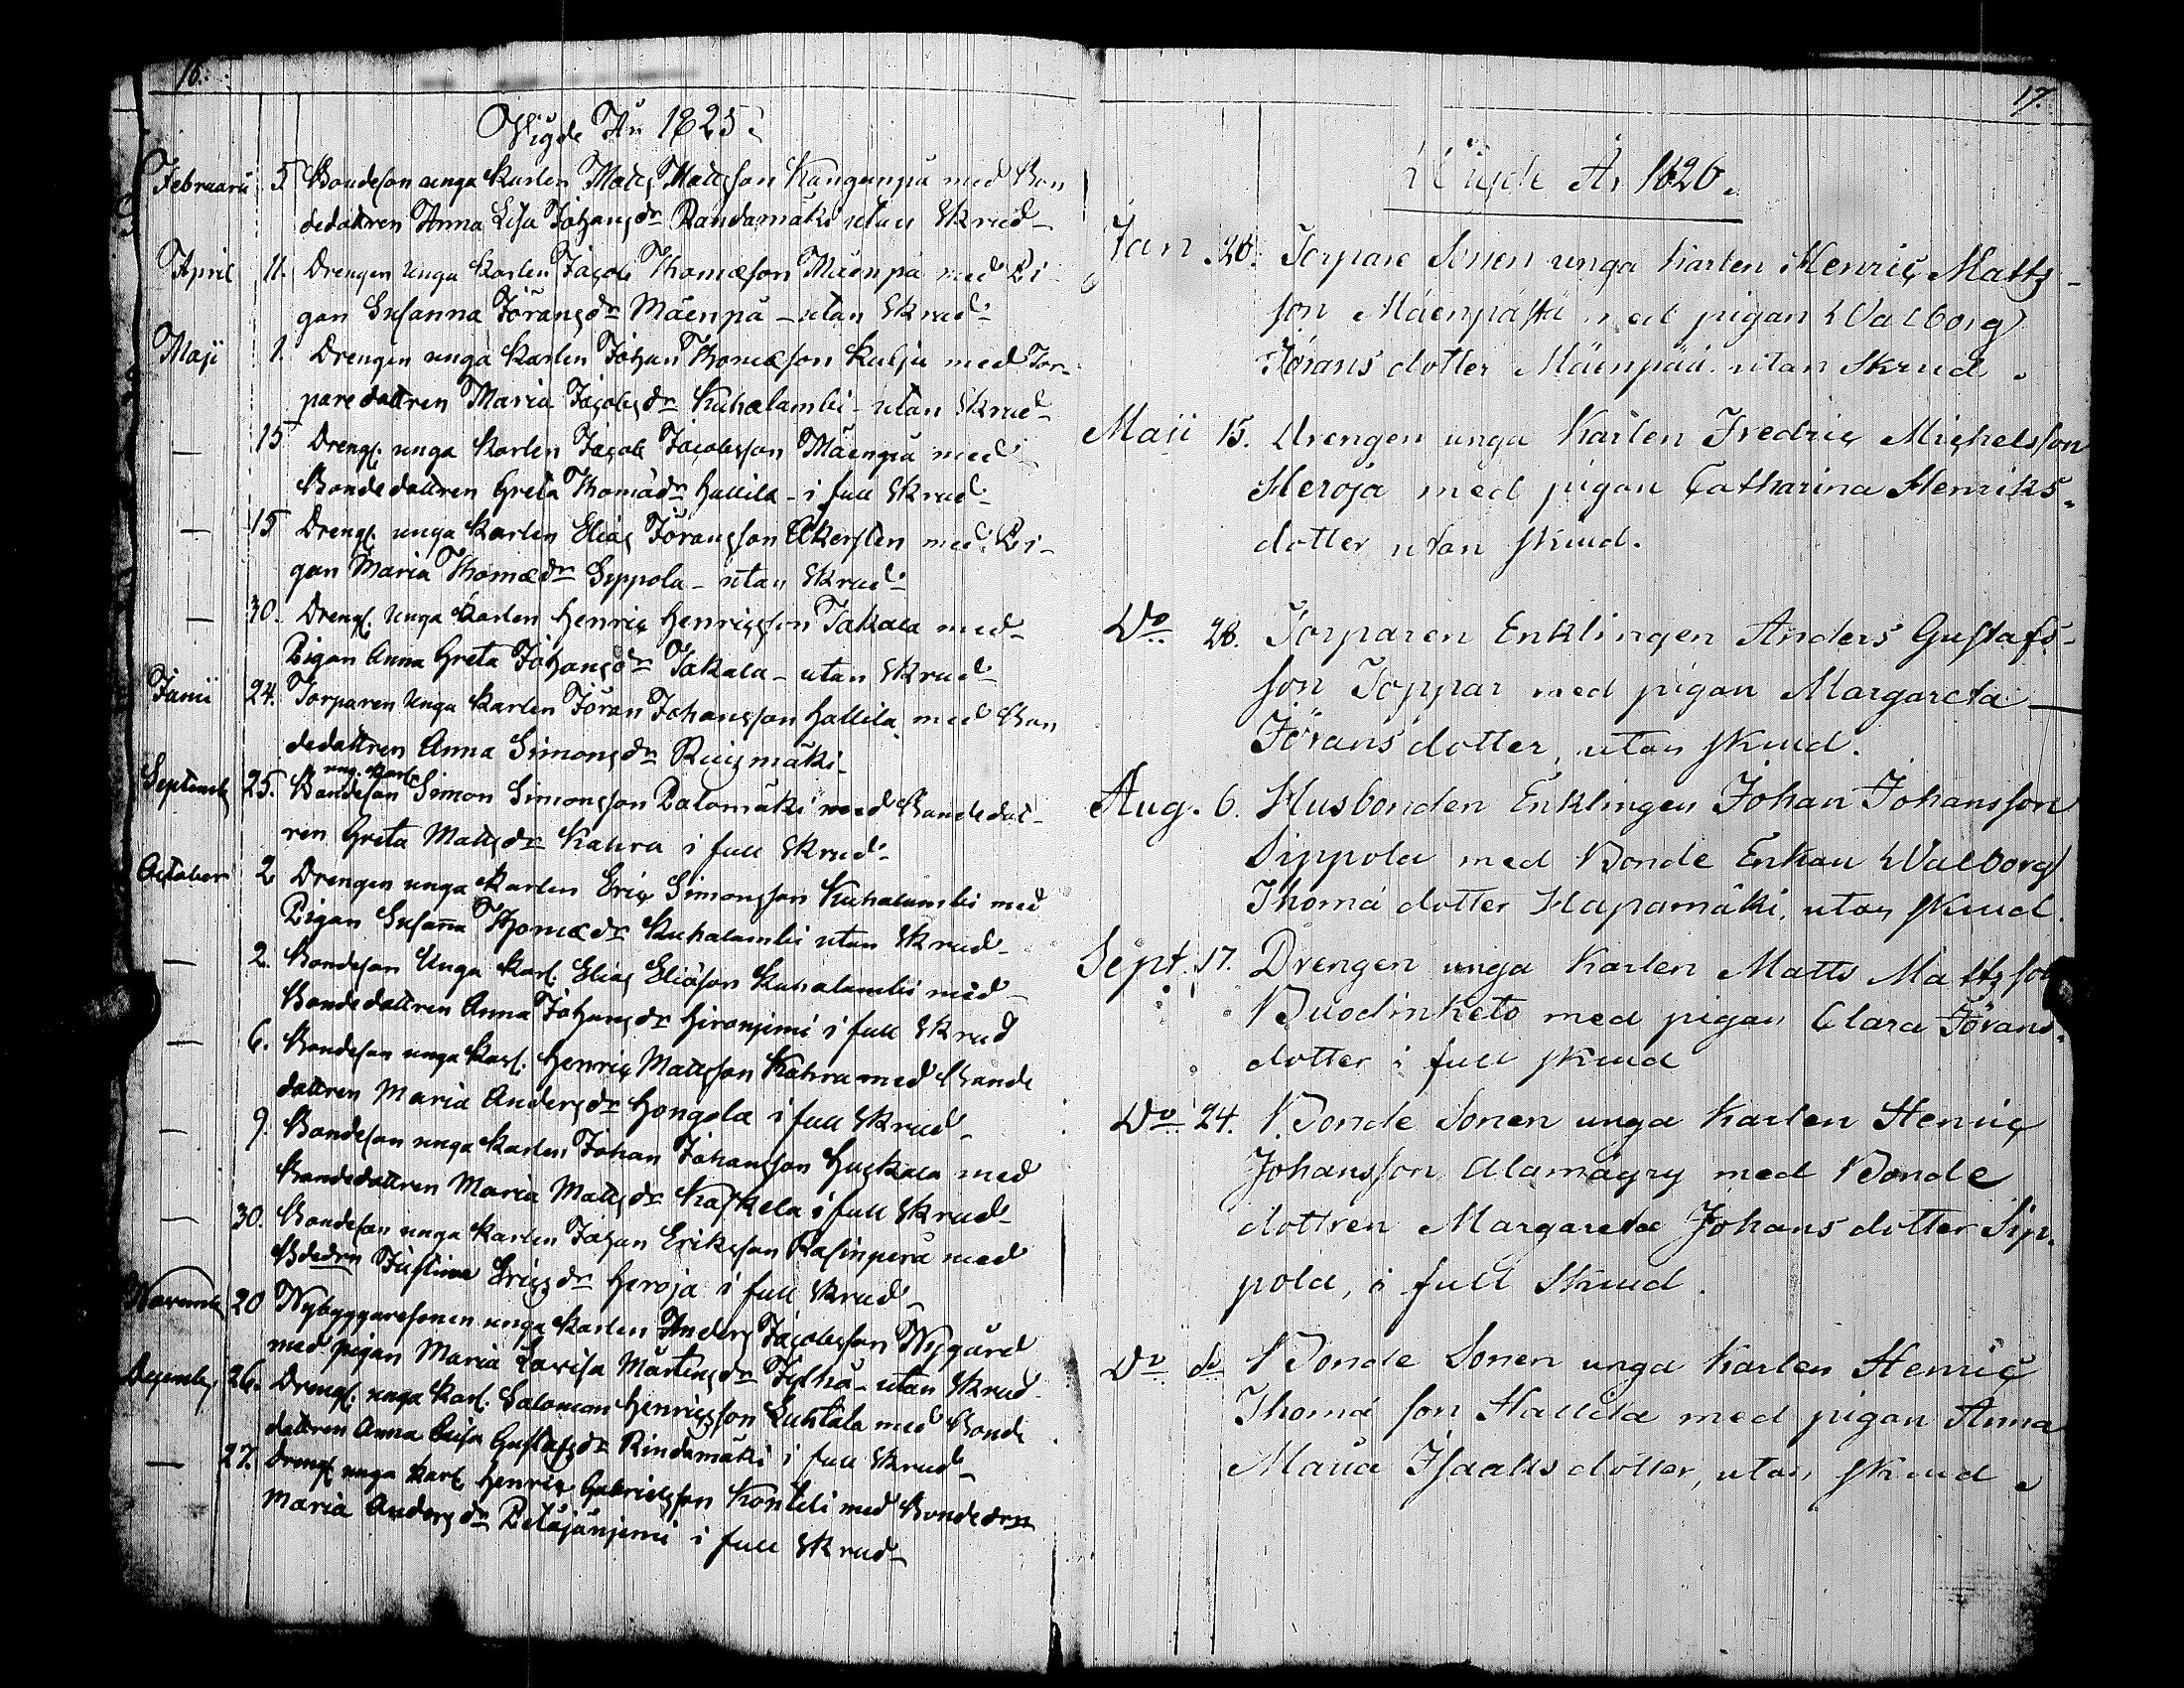 16.
Vigde År 1825.
Februarii 5 Bondeson unga Karlen Matts Mattsson Kangenpä med Bon
dedottren Anna Lisa Johansdr Randamäki utan Skrud
April 11. Drengen unga Karlen Jacob Thomæson Mäenpä med Pi-
gan Susanna Jöransdr Mäenpä - utan Skrud
Maji 1. Drengen unga Karlen Johan Thomæson Kulju med Tor-
paredottren Maria Jacobsdr Kuhalambi - utan Skrud
— 15 Dreng. unga Karlen Jacob Jacobsson Mäenpä med
Bondedottren Greta Thomädr Hallila - i full Skrud
— 15 Dreng. unga Karlen Elias Jöransson Åkersten med Pi-
gan Maria Thomædr Sippola - utan Skrud
— 30. Dreng. unga Karlen Henric Henricsson Takala med
Pigan Anna Greta Johansdr Takala - utan Skrud
Junii 24. Torparen unga Karlen Jöran Johansson Hallila med Bon
dedottren Anna Simonsdr Ruismäki
ung. Karl.
Septemb 25. Bondeson Simon Simonsson Palomäki med Bondedot-
ren Greta Mattsdr Kahra i full Skrud
October 2 Drengen unga Karlen Eric Simonsson Kuhalambi med
Pigan Susana Thomædr Kuhalambi utan Skrud
— 2. Bondeson Unga Karl. Elias Eliäson Kuhalambi med
Bondedottren Anna Johansdr Hironjemi i full Skrud
— 6. Bondeson unga Karl. Henric Mattsson Kahra med Bonde
dottren Maria Andersdr Hongola i full Skrud
— 9. Bondeson unga Karlen Johan Johansson Huskala med
Bondedottren Maria Mattsdr Kaskela i full Skrud
— 30. Bondeson unga Karlen Johan Eriksson Rasinperä med
Bdedrn Justina Ericsdr Heroja i full Skrud
Novemb 20 Nybyggaresonen unga Karlen Anders Jacobsson Nygård
med pigan Maria Lovisa Mårtensdr Jylhä - utan Skrud
Decemb. 26. Dreng. unga Karl. Salomon Henricsson Luhtala med Bonde
dottren Anna Caisa Gustafsdr Rindamäki i full Skrud
— 27. Dreng. unga Karl Henric Gabrielsson Konteli med Bondedrn
Maria Andersdr Petäjänjemi i full Skrud
17.
Vigde År 1826.
Jan. 20. Torpare Sonen unga Karlen Henric Matts-
son Mäenpästä med pigan Walborg
Jörans dotter Mäenpää utan Skrud.
Maii 15. Drengen unga Karlen Fredric Michelsson
Heroja med pigan Catharina Henriks-
dotter utan skrud.
Do 28. Torparen Enklingen Anders Gustafs-
son Toppar med pigan Margareta
Jörans dotter, utan skrud.
Aug. 6. Husbonden Enklingen Johan Johansson
Sippola med Bonde Enkan Walborg
Thomä dotter Hapamäki, utan skrud.
Sept. 17. Drengen unga Karlen Matts Mattsson
Buodinketo med pigan Clara Jörans
dotter i full skrud
Do 24. Bonde Sonen unga Karlen Henric
Johansson Alamäyry med Bonde
dottren Margareta Johans dotter Sip-
pola, i full Skrud.
Do do Bonde Sonen unga Karlen Henric
Thomä son Hallila med pigan Anna
Maria Isaaks dotter, utan skrud.